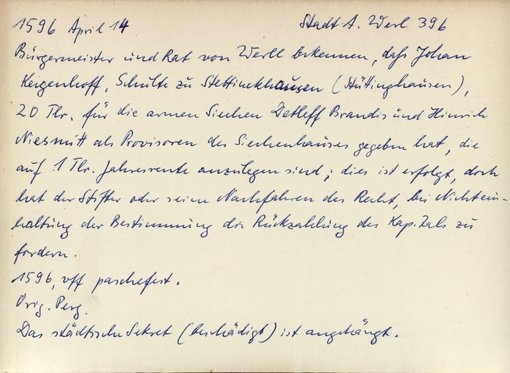 1596 April 14 Stadt A. Werl 396
Bürgermeister und Rat von Werll bekennen, daß Johan
Kergenhoff, Schulte zu Stettinckhausen (Stüttinghausen),
20 Tlr. für die armen Siechen Detleff Brandis und Hinrich
Niesmitt als Provisoren des Siechenhauses gegeben hat, die
auf 1 Tlr. Jahresrente anzulegen sind; dies ist erfolgt, doch
hat der Stifter oder seine Nachfahren das Recht, bei Nichtein-
haltung der Bestimmung die Rückzahlung des Kapitals zu
fordern.
1596, vff paschefest.
Orig. Perg.
Das städtische Sekret (beschädigt) ist angehängt.